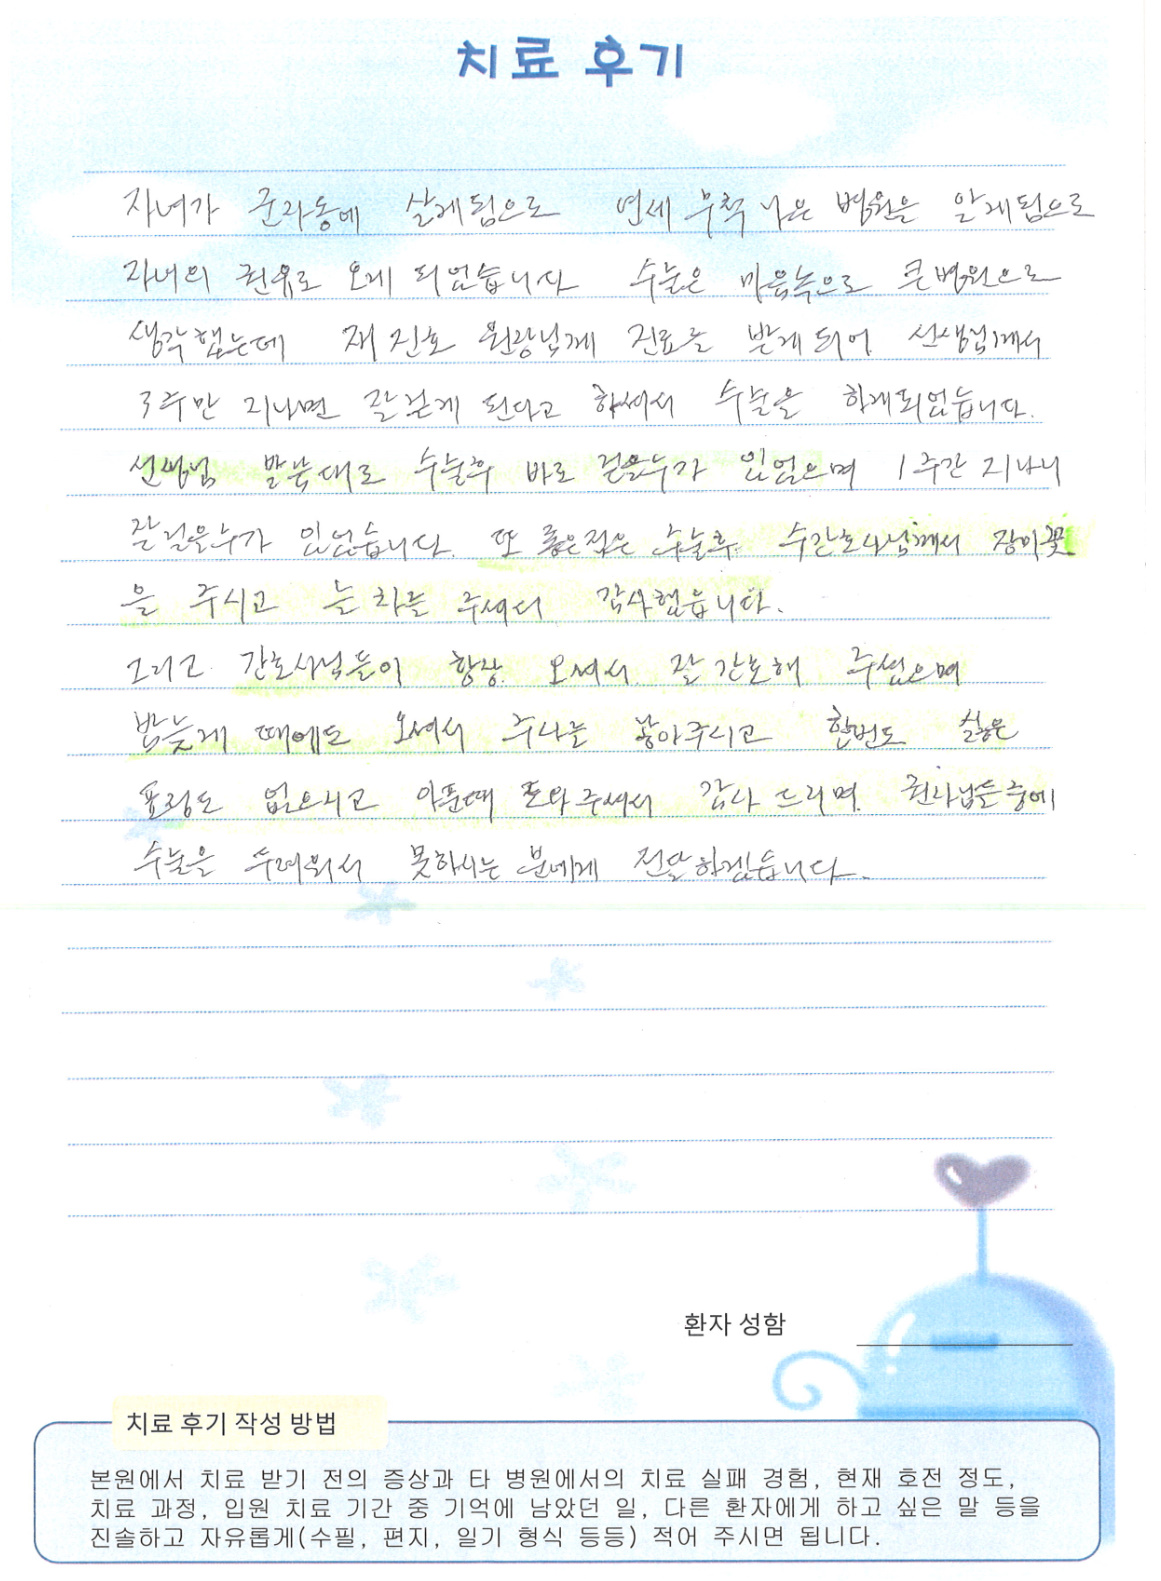 치료 후기
자녀가 군자동에 살게됨으로 연세무척나은 병원을 알게됨으로
자녀의 권유로 오게 되었습니다 수술은 마음속으로 큰병원으로
생각했는데 재 진호 원장님께 진료를 받게되어 선생님께서
3주만 지나면 잘걷게 된다고 하셔서 수술을 하게되었습니다.
선생님 말씀대로 수술후 바로 걸을수가 있었으며 1주간 지나니
잘걸을수가 있었습니다. 또 좋은점은 수술후 수간호사님께서 장미꽃
을 주시고 녹차를 주셔서 감사했읍니다.
그리고 간호사님들이 항상 오셔서 잘 간호해 주셨으며
밤늦게 때에도 오셔서 주사를 놓아주시고 한번도 싫은
표정도 없으시고 아픈때 도와주셔서 감사 드리며 권사님들중에
수술을 두려워서 못하시는 분에게 전달하겠습니다.
환자 성함
치료 후기 작성 방법
본원에서 치료 받기 전의 증상과 타 병원에서의 치료 실패 경험, 현재 호전 정도,
치료 과정, 입원 치료 기간 중 기억에 남았던 일, 다른 환자에게 하고 싶은 말 등을
진솔하고 자유롭게(수필, 편지, 일기 형식 등등) 적어 주시면 됩니다.